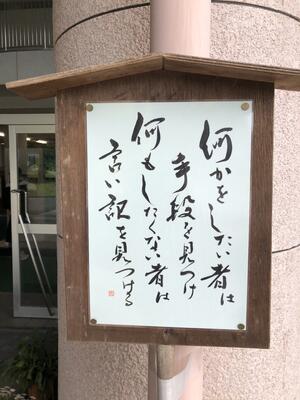 何かをしたい者は
手段を見つけ
何もしたくない者は
言い訳を見つける